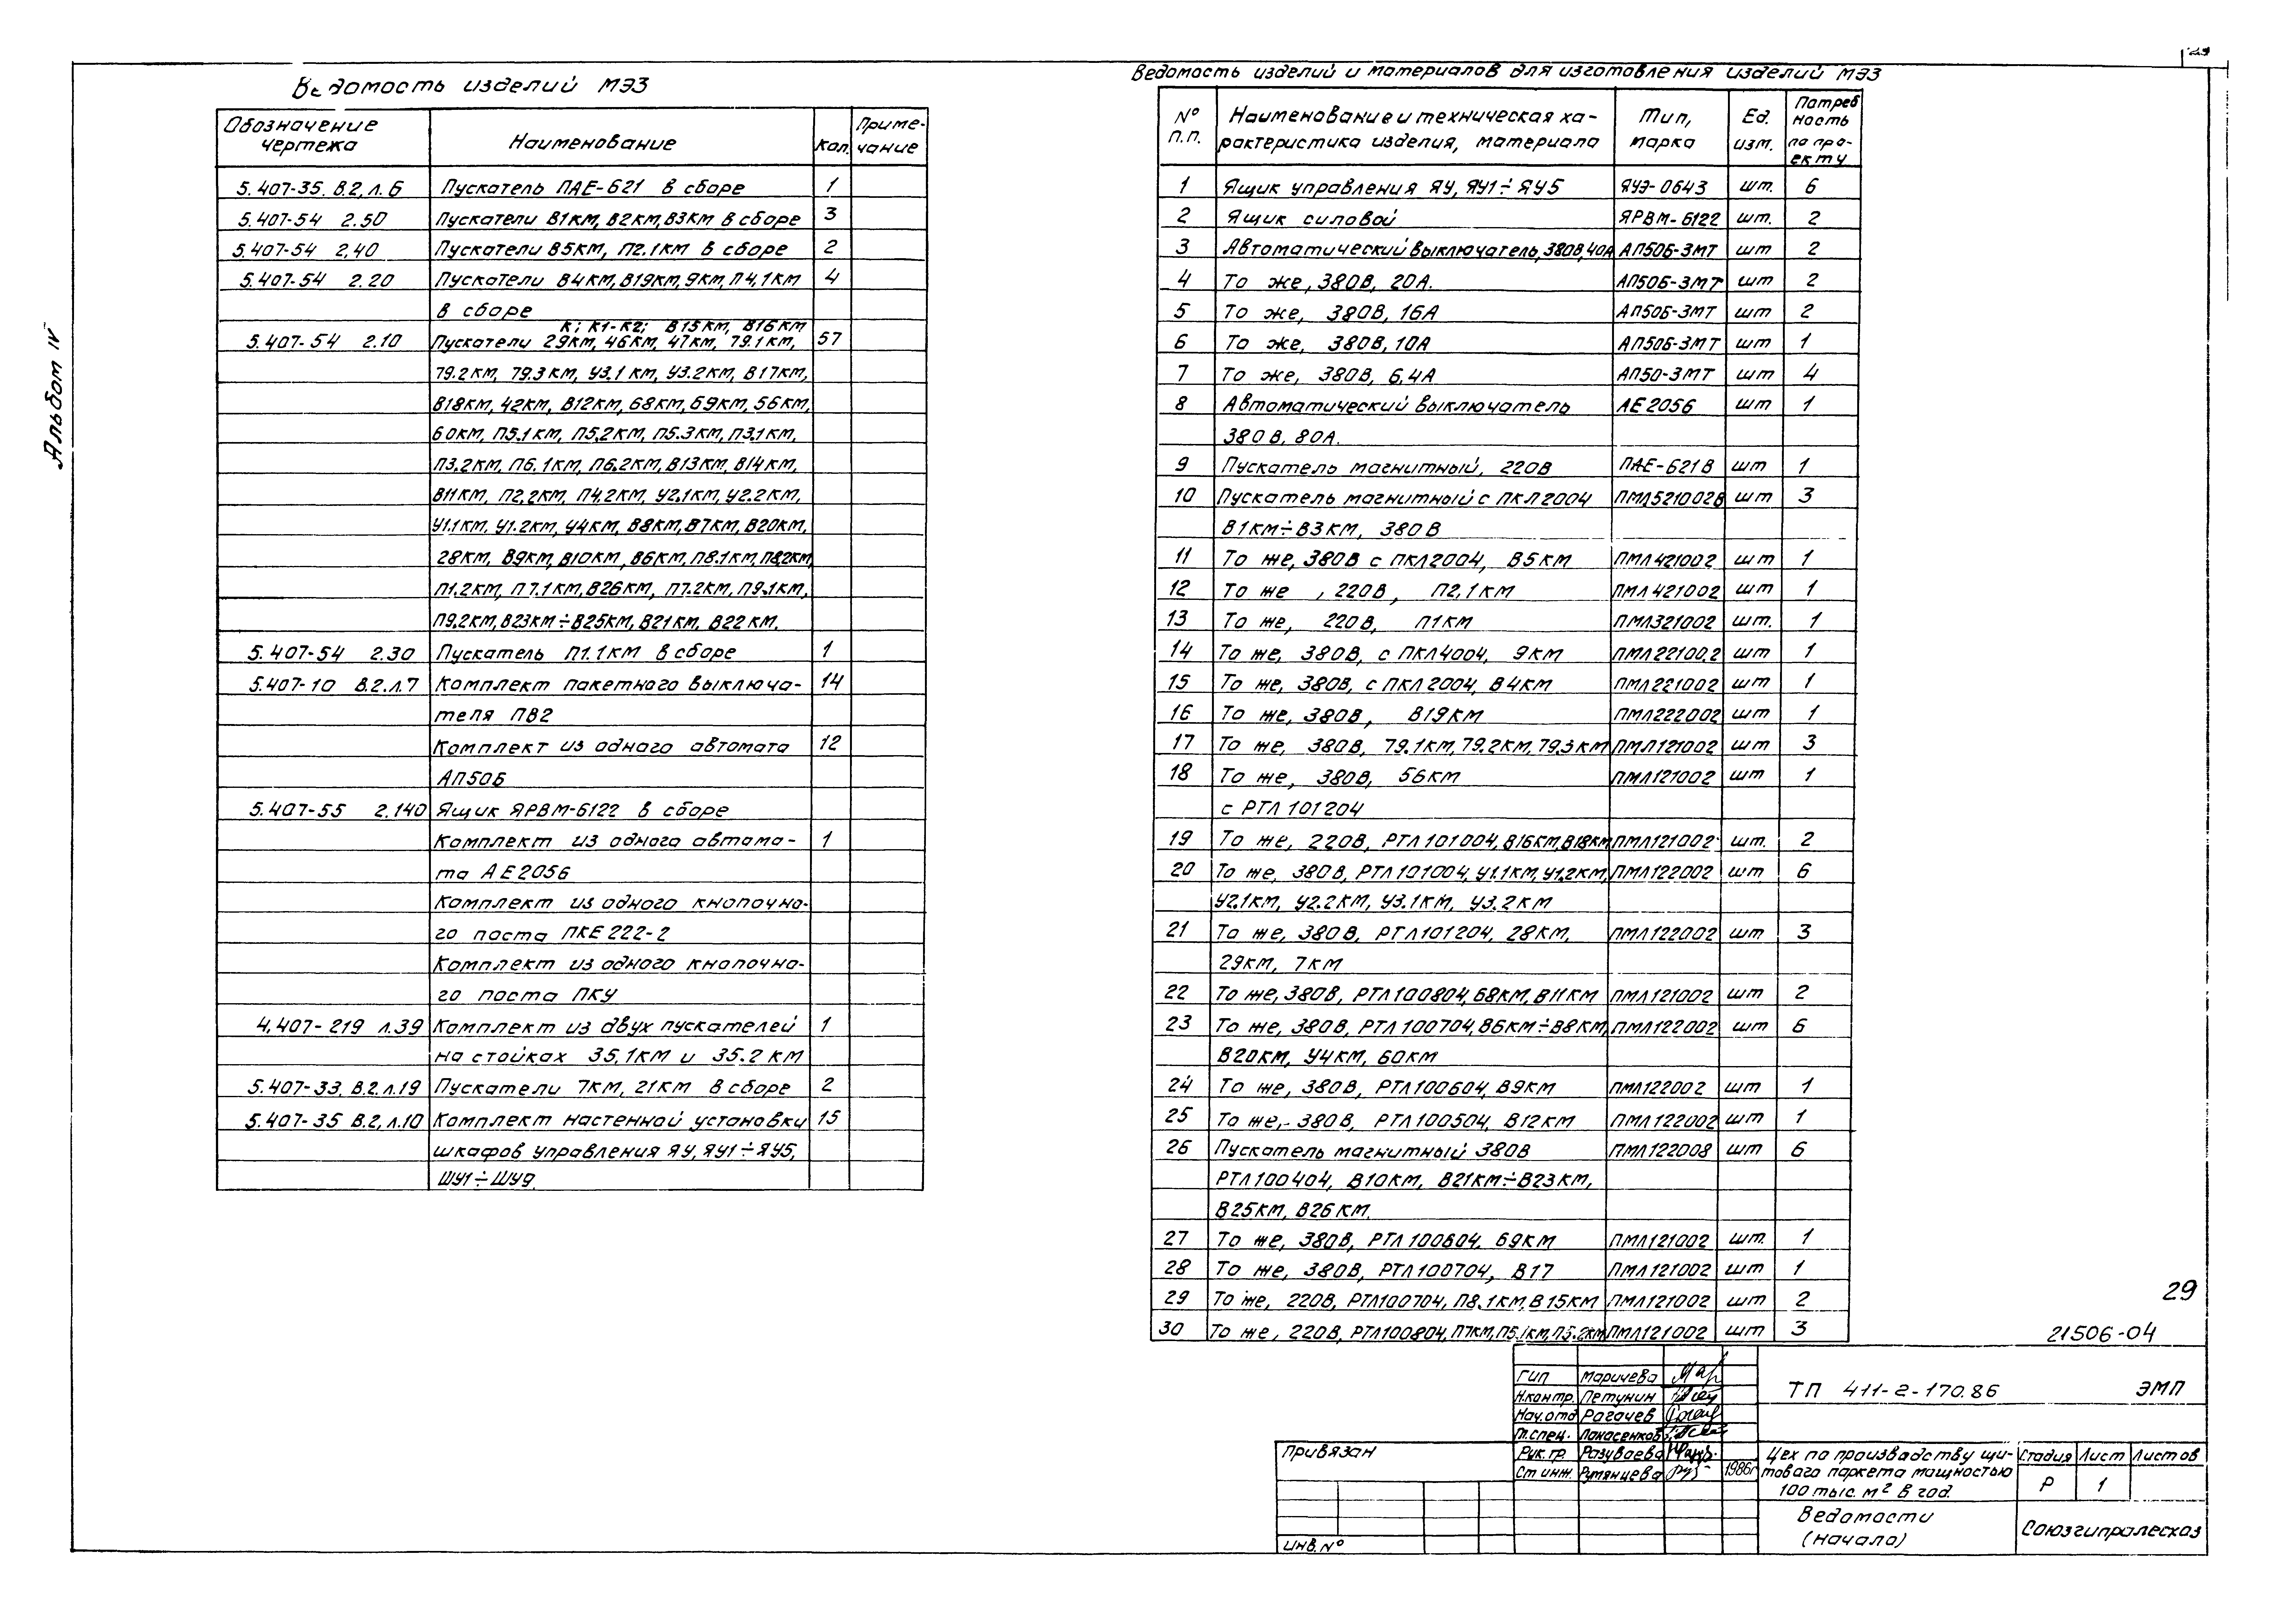 29
Альбом IV
Ведомость изделий МЭЗ
Обозначение чертежа | Наименование | Кол. | Примечание
5.407-35. В.2, л.6 Пускатель ПАЕ-621 в сборе 1
5.407-54 2.50 Пускатели В1КМ, В2КМ, В3КМ в сборе 3
5.407-54 2.40 Пускатели В5КМ, П2.1КМ в сборе 2
5.407-54 2.20 Пускатели В4КМ, В19КМ, 9КМ, П4.1КМ 4
в сборе
К; К1-К2; В15КМ, В16КМ
5.407-54 2.10 Пускатели 29КМ, 46КМ, 47КМ, 79.1КМ, 57
79.2КМ, 79.3КМ, У3.1КМ, У3.2КМ, В17КМ,
В18КМ, 42КМ, В12КМ, 68КМ, 69КМ, 56КМ,
60КМ, П5.1КМ, П5.2КМ, П5.3КМ, П3.1КМ,
П3.2КМ, П6.1КМ, П6.2КМ, В13КМ, В14КМ,
В11КМ, П2.2КМ, П4.2КМ, У2.1КМ, У2.2КМ,
У1.1КМ, У1.2КМ, У4КМ, В8КМ, В7КМ, В20КМ,
28КМ, В9КМ, В10КМ, В6КМ, П8.1КМ, П8.2КМ,
П1.2КМ, П7.1КМ, В26КМ, П7.2КМ, П9.1КМ,
П9.2КМ, В23КМ÷В25КМ, В21КМ, В22КМ.
5.407-54 2.30 Пускатель П1.1КМ в сборе 1
5.407-10 В.2.л.7 Комплект пакетного выключа- 14
теля ПВ2
Комплект из одного автомата 12
АП50Б
5.407-55 2.140 Ящик ЯРВМ-6122 в сборе
Комплект из одного автома- 1
та АЕ2056
Комплект из одного кнопочно-
го поста ПКЕ222-2
Комплект из одного кнопочно-
го поста ПКУ
4.407-219 л.39 Комплект из двух пускателей 1
на стойках 35.1КМ и 35.2КМ
5.407-33, В.2.л.19 Пускатели 7КМ, 21КМ в сборе 2
5.407-35 В.2, л.10 Комплект настенной установки 15
шкафов управления ЯУ, ЯУ1÷ЯУ5,
ШУ1÷ШУ9.
Ведомость изделий и материалов для изготовления изделий МЭЗ
№ п.п. | Наименование и техническая ха-рактеристика изделия, материала | Тип, марка | Ед. изм. | Потребность по про-екту
1 Ящик управления ЯУ, ЯУ1÷ЯУ5 ЯУЭ-0643 шт. 6
2 Ящик силовой ЯРВМ-6122 шт. 2
3 Автоматический выключатель, 380В, 40А АП50Б-3МТ шт 2
4 То же, 380В, 20А. АП50Б-3МТ шт 2
5 То же, 380В, 16А АП50Б-3МТ шт 2
6 То же, 380В, 10А АП50Б-3МТ шт 1
7 То же, 380В, 6,4А АП50-3МТ шт 4
8 Автоматический выключатель АЕ2056 шт 1
380В, 80А.
9 Пускатель магнитный, 220В ПАЕ-621В шт 1
10 Пускатель магнитный с ПКЛ2004 ПМЛ521002В шт 3
В1КМ÷В3КМ, 380В
11 То же, 380В с ПКЛ2004, В5КМ ПМЛ421002 шт 1
12 То же , 220В, П2.1КМ ПМЛ421002 шт 1
13 То же, 220В, П1КМ ПМЛ321002 шт. 1
14 То же, 380В, с ПКЛ4004, 9КМ ПМЛ221002 шт 1
15 То же, 380В, с ПКЛ2004, В4КМ ПМЛ221002 шт 1
16 То же, 380В, В19КМ ПМЛ222002 шт 1
17 То же, 380В, 79.1КМ, 79.2КМ, 79.3КМ ПМЛ121002 шт 3
18 То же, 380В, 56КМ ПМЛ121002 шт 1
с РТЛ101204
19 То же, 220В, РТЛ101004, В16КМ, В18КМ ПМЛ121002 шт. 2
20 То же, 380В, РТЛ101004, У1.1КМ, У1.2КМ, ПМЛ122002 шт 6
У2.1КМ, У2.2КМ, У3.1КМ, У3.2КМ
21 То же, 380В, РТЛ101204, 28КМ, ПМЛ122002 шт 3
29КМ, 7КМ
22 То же, 380В, РТЛ100804, 68КМ, В11КМ ПМЛ121002 шт 2
23 То же, 380В, РТЛ100704, В6КМ÷В8КМ, ПМЛ122002 шт 6
В20КМ, У4КМ, 60КМ
24 То же, 380В, РТЛ100604, В9КМ ПМЛ122002 шт 1
25 То же, 380В, РТЛ100504, В12КМ ПМЛ122002 шт 1
26 Пускатель магнитный 380В ПМЛ122008 шт 6
РТЛ100404, В10КМ, В21КМ÷В23КМ,
В25КМ, В26КМ.
27 То же, 380В, РТЛ100604, 69КМ ПМЛ121002 шт. 1
28 То же, 380В, РТЛ100704, В17 ПМЛ121002 шт 1
29 То же, 220В, РТЛ100704, П8.1КМ, В15КМ ПМЛ121002 шт 2
30 То же, 220В, РТЛ100804, П7КМ, П5.1КМ, П5.2КМ ПМЛ121002 шт 3
29
21506-04
ГИП Маричева
Н.контр. Петунин
Нач.отд Рагачев
Гл.спец. Панасенков
Рук.гр. Разуваева
Ст инж. Румянцева 1986г
ТП 411-2-170.86 ЭМП
Привязан
Инв.№
Цех по производству щи-
тового паркета мощностью
100 тыс. м² в год.
Стадия Лист Листов
Р 1
Ведомости
(начало)
Союзгипролесхоз